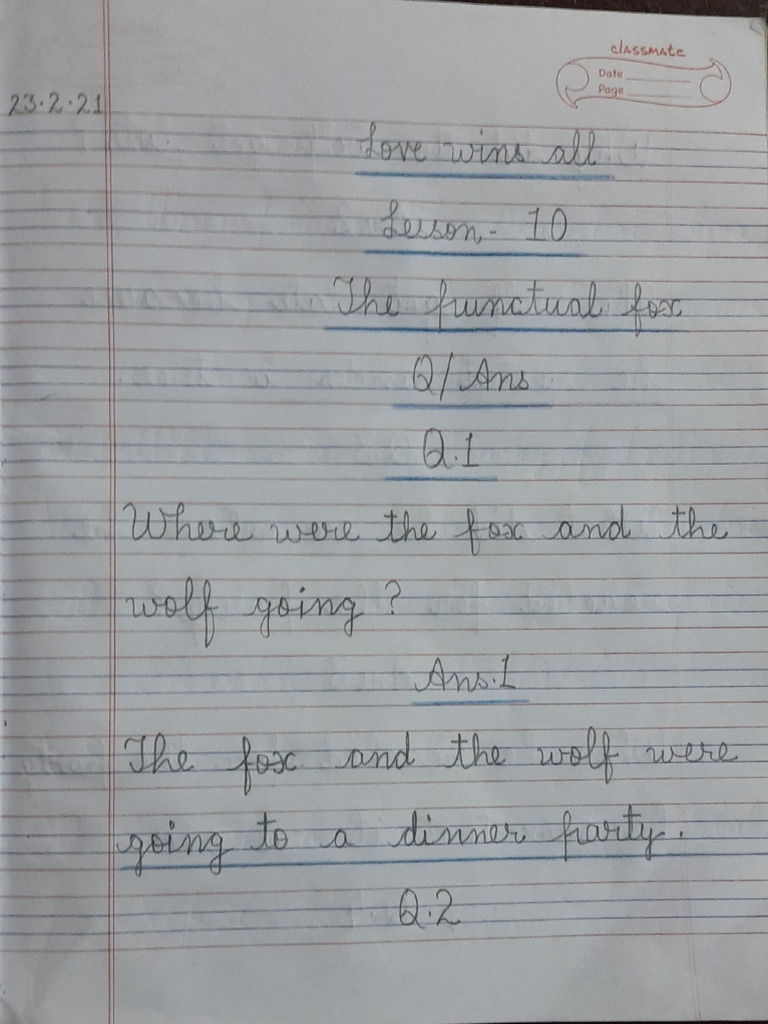 classmate
Date
Page
23.2.21
Love wins all
Lesson- 10
The punctual fox
Q/Ans
Q.1
Where were the fox and the
wolf going?
Ans.1
The fox and the wolf were
going to a dinner party.
Q.2